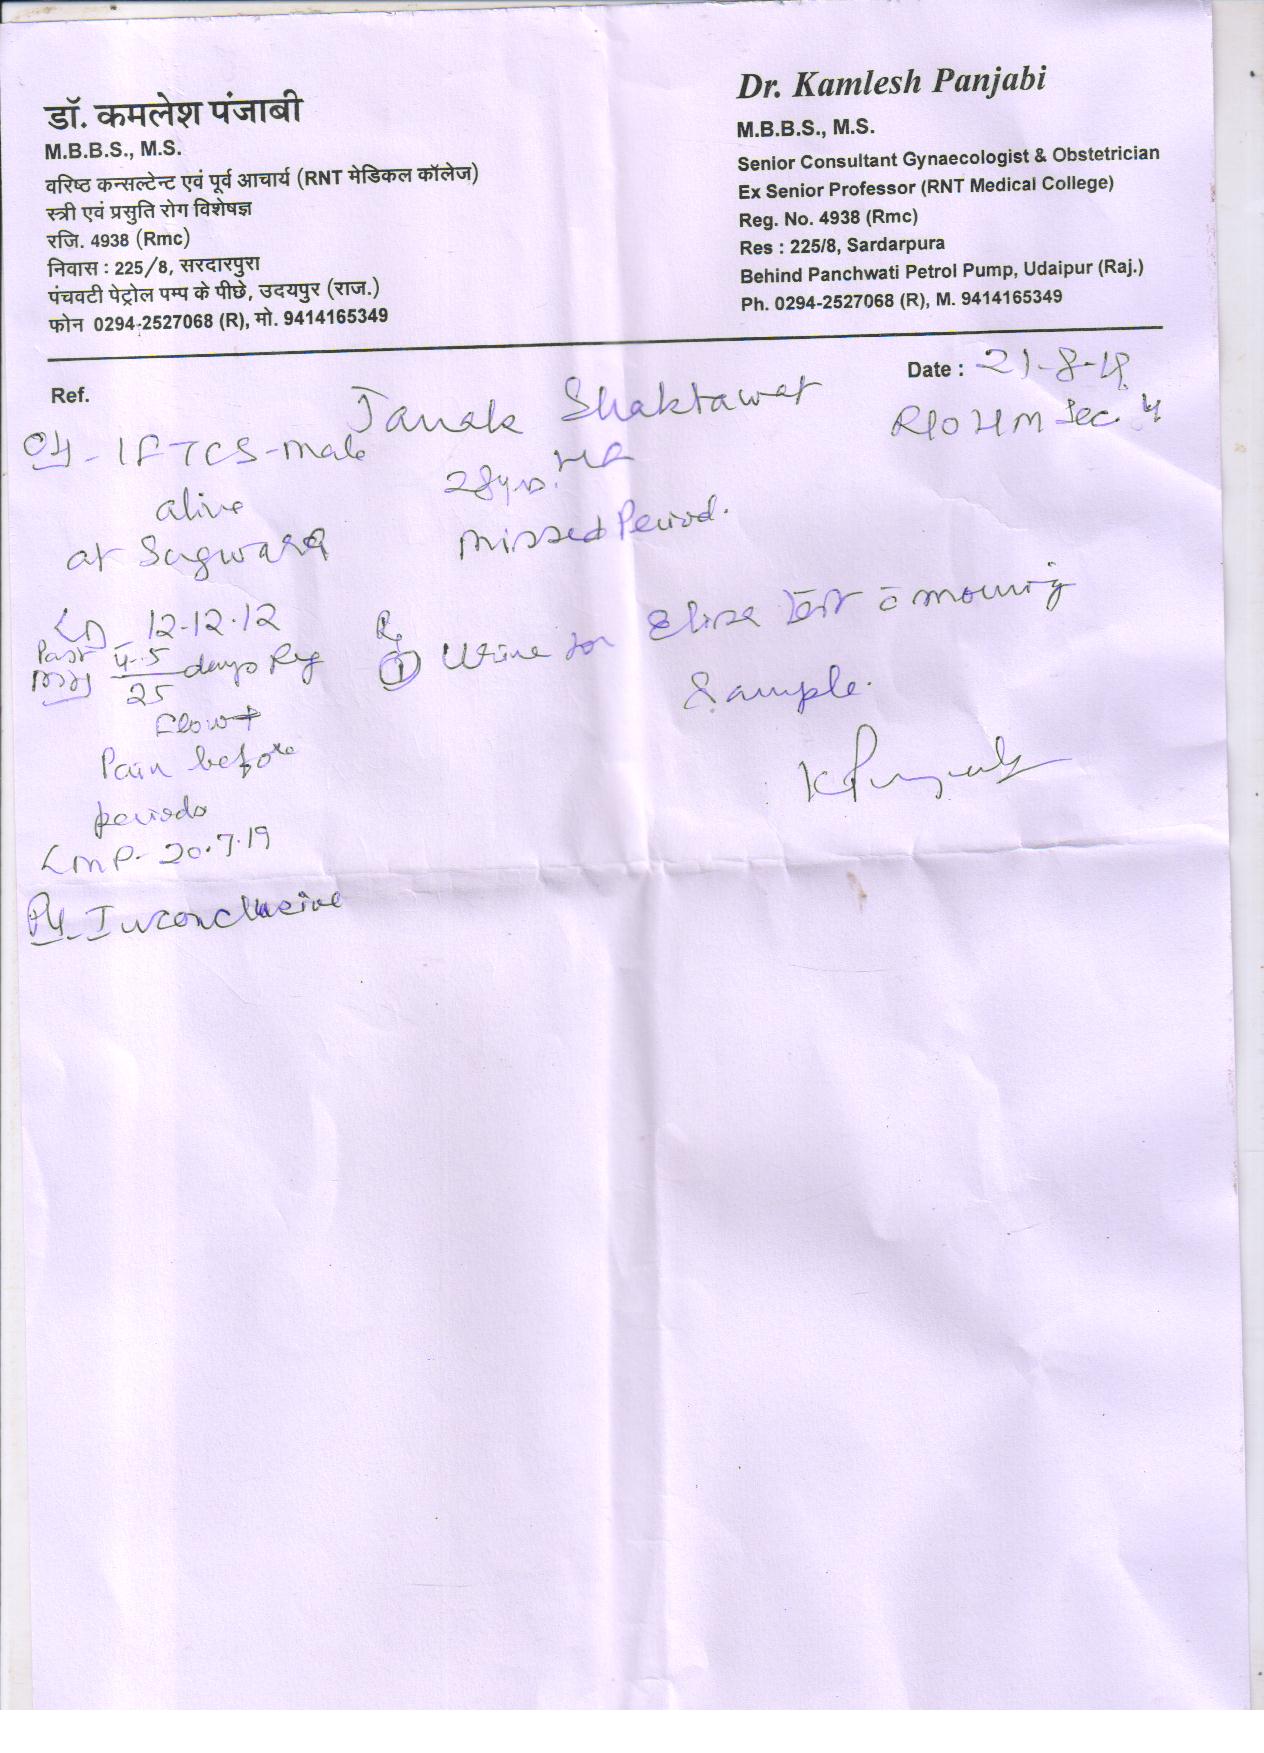 डॉ. कमलेश पंजाबी
M.B.B.S., M.S.
वरिष्ठ कन्सल्टेन्ट एवं पूर्व आचार्य (RNT मेडिकल कॉलेज)
स्त्री एवं प्रसुति रोग विशेषज्ञ
रजि. 4938 (Rmc)
निवास : 225/8, सरदारपुरा
पंचवटी पेट्रोल पम्प के पीछे, उदयपुर (राज.)
फोन 0294-2527068 (R), मो. 9414165349
Dr. Kamlesh Panjabi
M.B.B.S., M.S.
Senior Consultant Gynaecologist & Obstetrician
Ex Senior Professor (RNT Medical College)
Reg. No. 4938 (Rmc)
Res : 225/8, Sardarpura
Behind Panchwati Petrol Pump, Udaipur (Raj.)
Ph. 0294-2527068 (R), M. 9414165349
Ref.
Date :
Janak Shaktawat
R/O HM Sec. 4
28yrs.
Missed Period.
OH - 1FTCS - male
alive
at Sagwara
LD - 12-12-12
Past MH 4-5/25 days Reg
Flow+
Pain before
periods
LMP - 20.7.19
PV Inconclusive
Rx
① Urine for Elisa test c̄ morning
Sample.